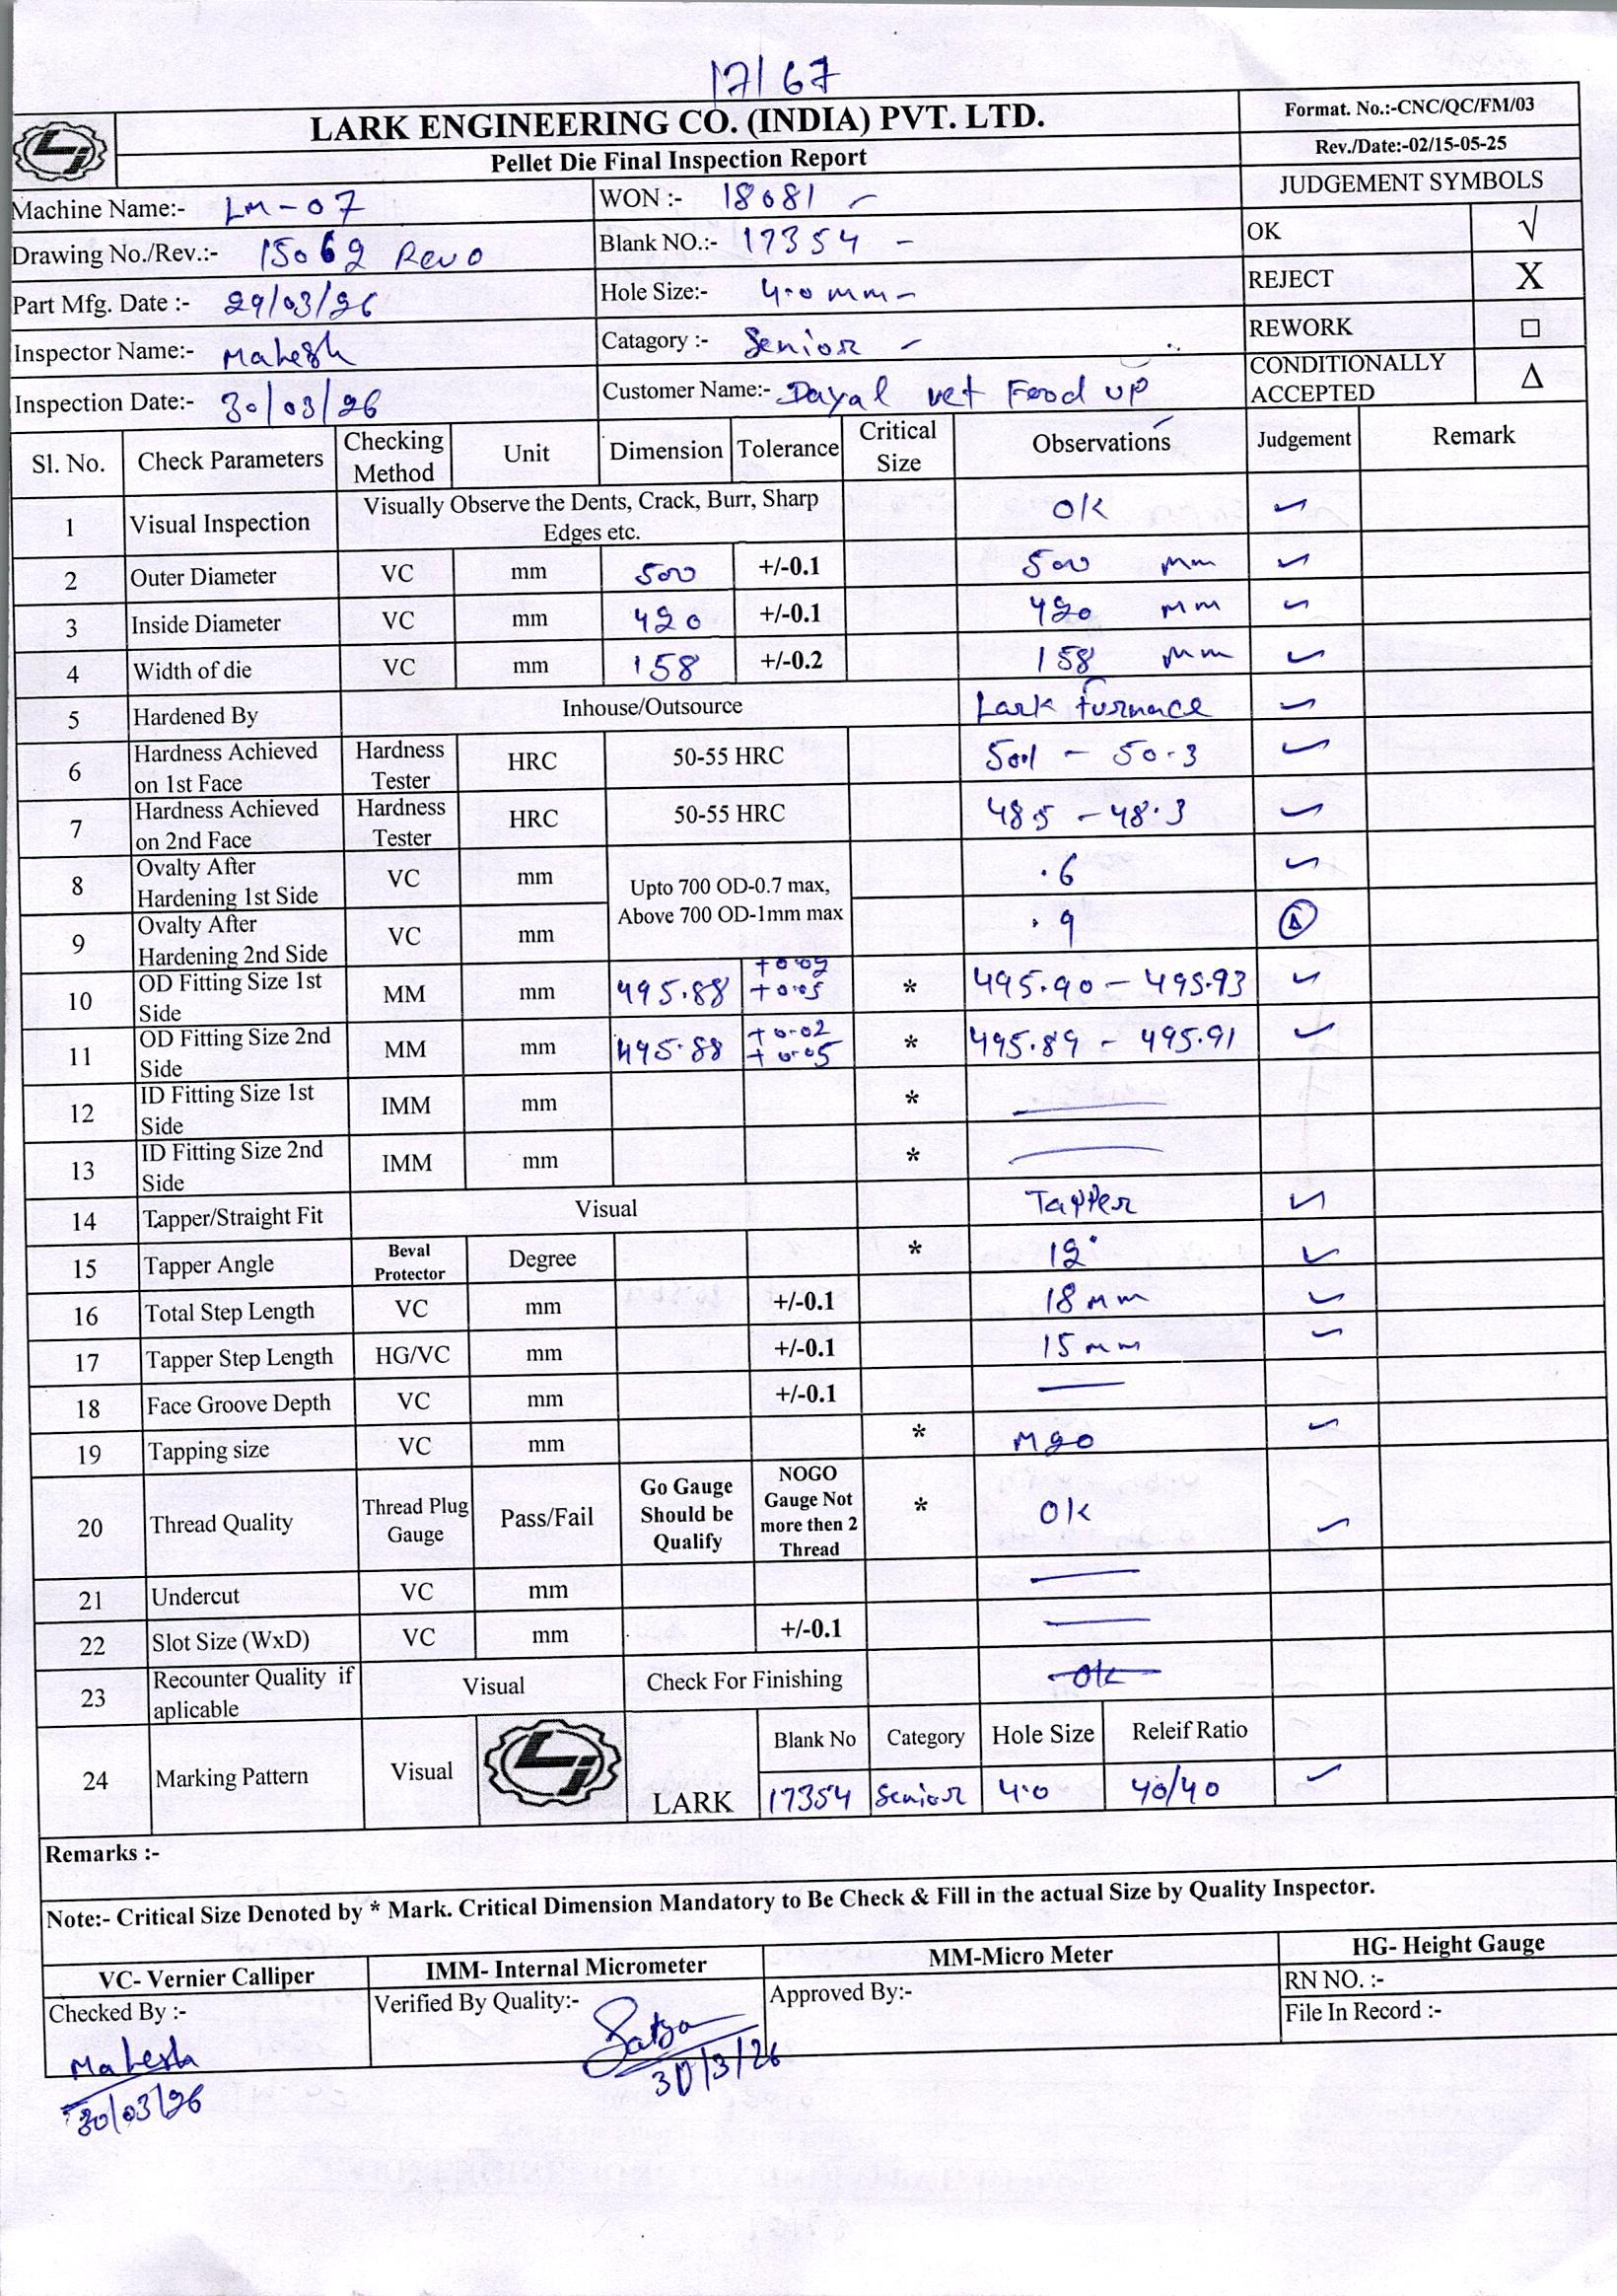 17/67
LARK ENGINEERING CO. (INDIA) PVT. LTD.
Pellet Die Final Inspection Report
Format. No.:-CNC/QC/FM/03
Rev./Date:-02/15-05-25
Machine Name:- LM-07
WON :- 18081 -
JUDGEMENT SYMBOLS
Drawing No./Rev.:- 15069 Rev 0
Blank NO.:- 17354 -
OK √
Part Mfg. Date :- 29/03/26
Hole Size:- 4.0 mm -
REJECT X
Inspector Name:- Mahesh
Catagory :- Senior -
REWORK □
Inspection Date:- 30/03/26
Customer Name:- Dayal vet Food up
CONDITIONALLY ACCEPTED Δ
Sl. No. Check Parameters Checking Method Unit Dimension Tolerance Critical Size Observations Judgement Remark
1 Visual Inspection Visually Observe the Dents, Crack, Burr, Sharp Edges etc. OK ✓
2 Outer Diameter VC mm 500 +/-0.1 500 mm ✓
3 Inside Diameter VC mm 420 +/-0.1 420 mm ✓
4 Width of die VC mm 158 +/-0.2 158 mm ✓
5 Hardened By Inhouse/Outsource Lark furnace ✓
6 Hardness Achieved on 1st Face Hardness Tester HRC 50-55 HRC 50.1 - 50.3 ✓
7 Hardness Achieved on 2nd Face Hardness Tester HRC 50-55 HRC 48.5 - 48.3 ✓
8 Ovalty After Hardening 1st Side VC mm Upto 700 OD-0.7 max, Above 700 OD-1mm max .6 ✓
9 Ovalty After Hardening 2nd Side VC mm .9 Δ
10 OD Fitting Size 1st Side MM mm 495.88 +0.05 * 495.90 - 495.93 ✓
11 OD Fitting Size 2nd Side MM mm 495.88 +0.02 +0.05 * 495.89 - 495.91 ✓
12 ID Fitting Size 1st Side IMM mm * —
13 ID Fitting Size 2nd Side IMM mm * —
14 Tapper/Straight Fit Visual Tapper ✓
15 Tapper Angle Beval Protector Degree * 12° ✓
16 Total Step Length VC mm +/-0.1 18 mm ✓
17 Tapper Step Length HG/VC mm +/-0.1 15 mm ✓
18 Face Groove Depth VC mm +/-0.1 —
19 Tapping size VC mm * M20 ✓
20 Thread Quality Thread Plug Gauge Pass/Fail Go Gauge Should be Qualify NOGO Gauge Not more then 2 Thread * OK ✓
21 Undercut VC mm —
22 Slot Size (WxD) VC mm +/-0.1 —
23 Recounter Quality if aplicable Visual Check For Finishing Ok
24 Marking Pattern Visual LARK Blank No Category Hole Size Releif Ratio
17354 Senior 4.0 40/40 ✓
Remarks :-
Note:- Critical Size Denoted by * Mark. Critical Dimension Mandatory to Be Check & Fill in the actual Size by Quality Inspector.
VC- Vernier Calliper IMM- Internal Micrometer MM-Micro Meter HG- Height Gauge
Checked By :- Verified By Quality:- Approved By:- RN NO. :-
File In Record :-
Mahesh
30/03/26
Satya
30/3/26